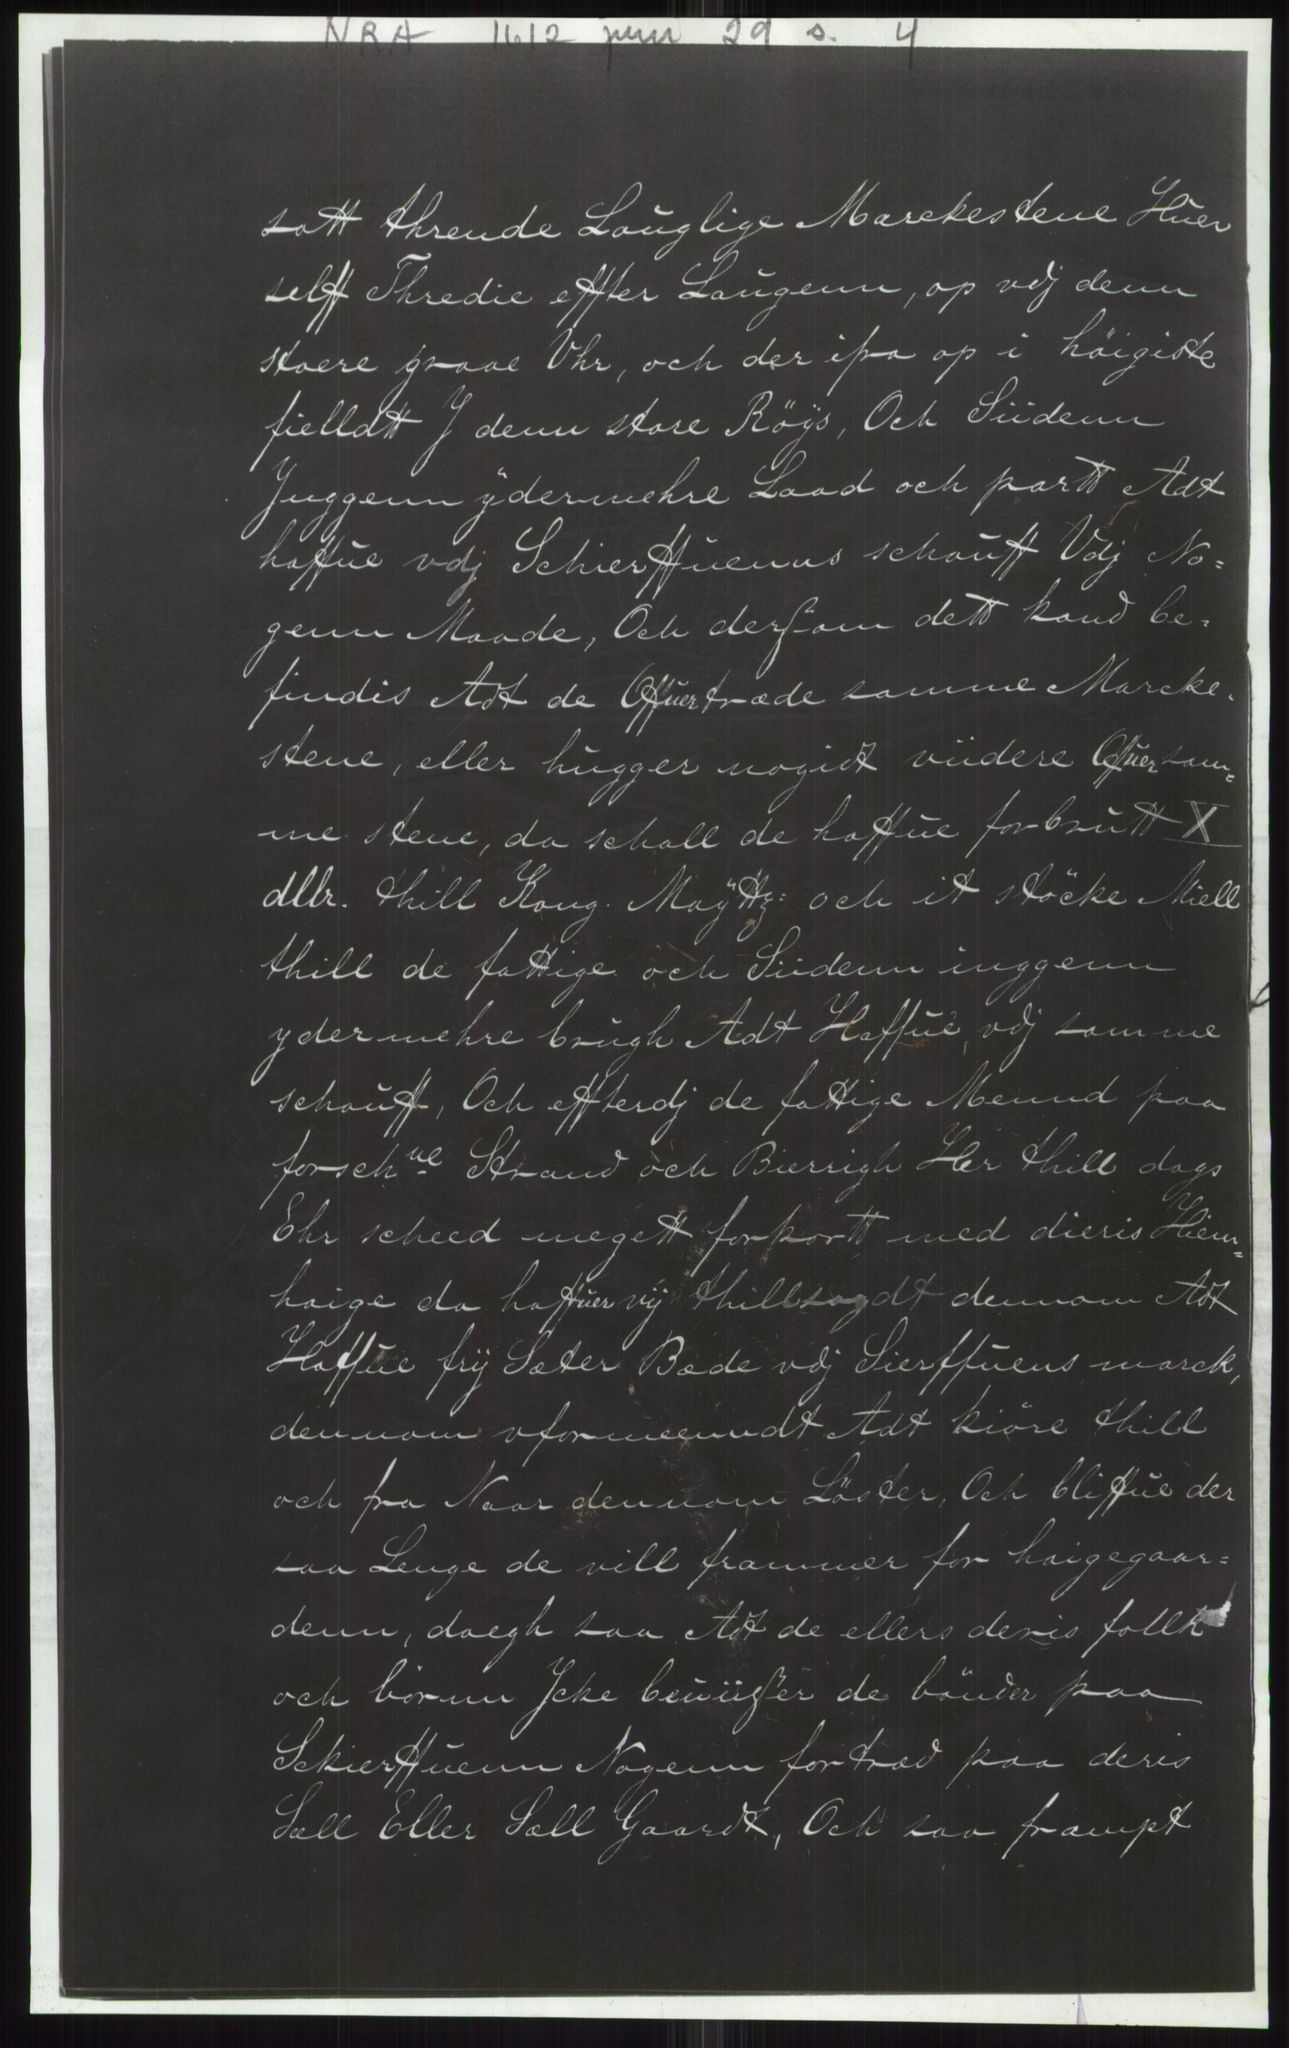 NRA 1612 juni 29 s. 4
satt threnđe Lauglige Marckestene Huer
selff Thredie effter Laugenn, op vdj denn
stoere graae Vhr, och der ifra op i höigiste
fielldtt J denn store Röÿs, Och Siidenn
Jnggenn ÿdermehre Laad och partt Adt
haffue vdj Schierffuenns schouff Vdj No-
genn Maade, Och derßom dett kand be-
findis Adt de Offuertræde samme Marcke-
stene, eller hugger nogidt viidere Offuer sam-
me stene, da schall de haffue forbrutt X
dllr. thill Kong. Maÿttz: och it stöcke Miell
thill de fattige och Siidenn inggenn
ydermehre brugh Adt Haffue, vdj samme
schouff, Och effterdj de fattige Mennd paa
forschne Strand och Bierrigh Her thill dags
Ehr scheed megett forkortt med dieris Hiem-
haige da haffuer vij thillsagdt dennom Adt
Haffue frij Sæter Bæde vdj Sierffuens marck,
dennom vformeenndt Adt kiöre thill
och fra Naar dennom Löster, Och bliffue der
saa Lenge de vill frammer for haigegaar-
denn, doegh saa Adt de ellers deris follk
och börnn Jcke beuiißer de bönder paa
Skierffuenn Nogenn fortred paa deris
Sæll Eller Sæll Gaardt, Och saa frampt